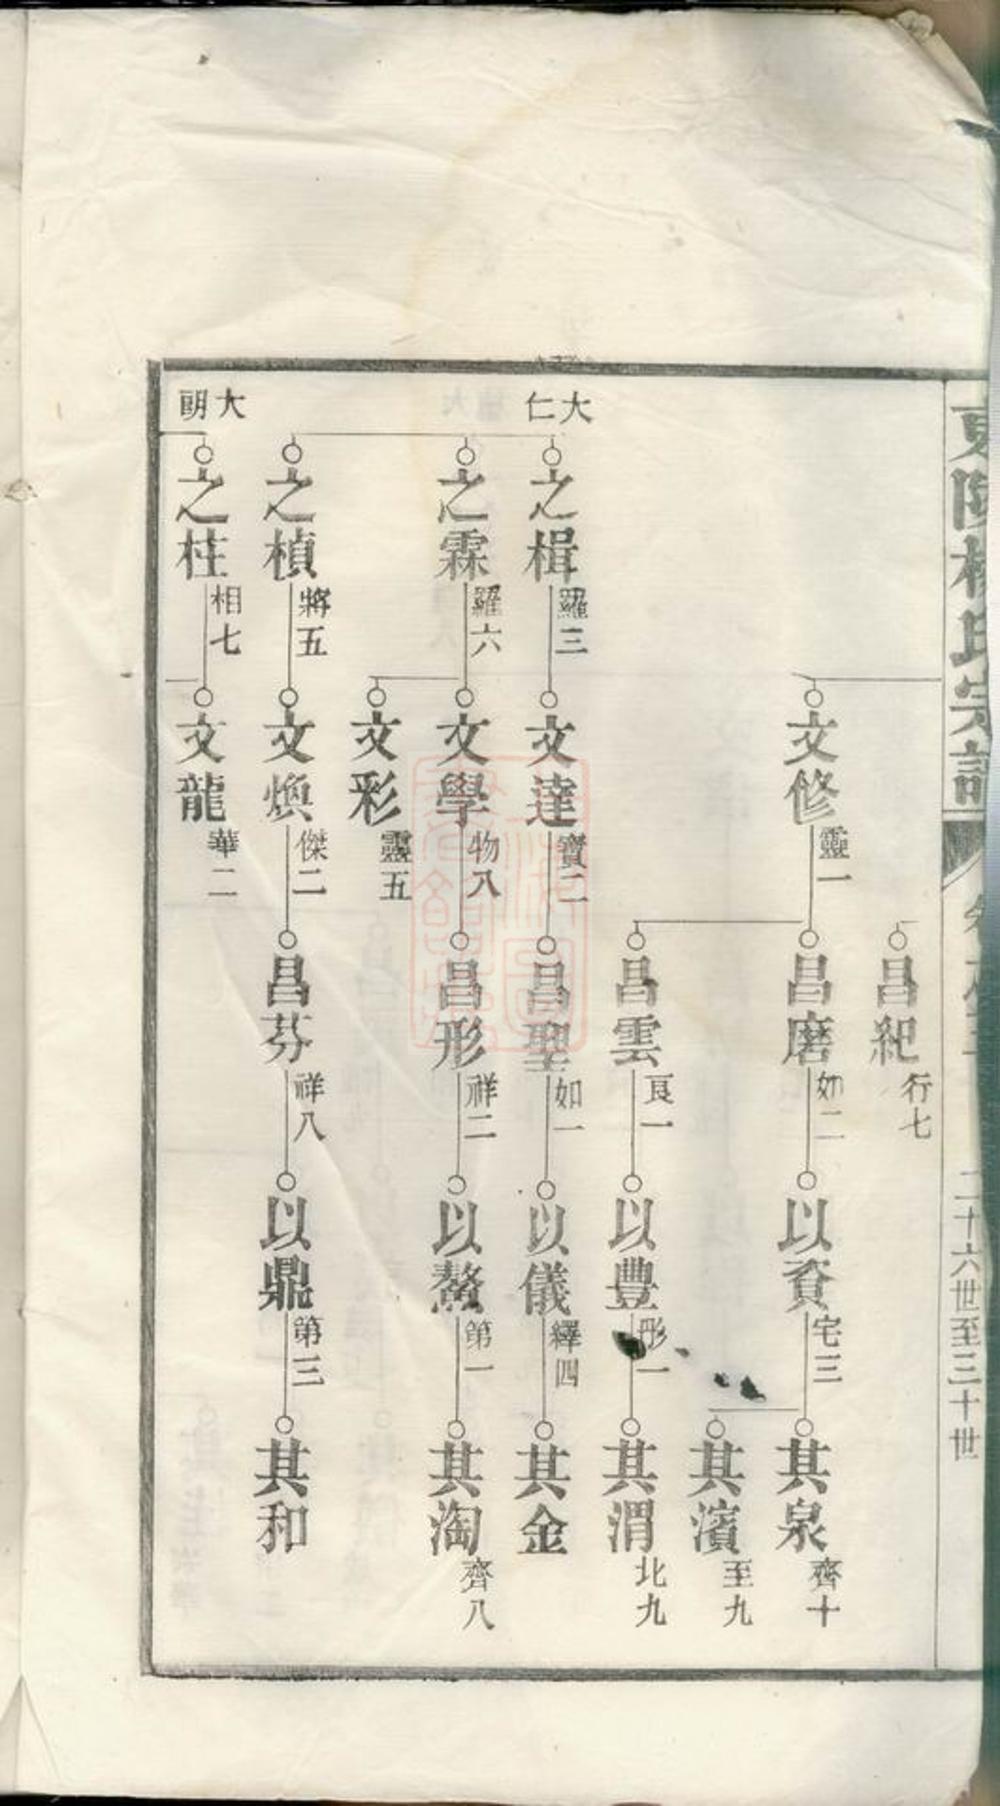 東陽楊氏宗譜
二十六世至三十世
昌紀 行七
文修 靈一
昌磨 如二
以資 宅三
其泉 齊十
其濱 至九
昌雲 良一
以豊 彤一
其渭 北九
大仁
之楫 羅三
文達 寶二
昌聖 如一
以儀 繹四
其金
之霖 羅六
文學 物八
昌形 祥二
以鰲 第一
其淘 齊八
文彩 靈五
之楨 將五
文煥 傑二
昌芬 祥八
以鼎 第三
其和
大明
之柱 相七
文龍 華二